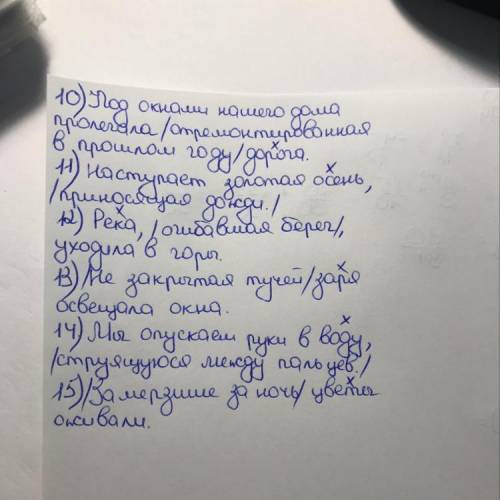 10) Под окнами нашего дома
пролегала /отремонтированная
в прошлом году/ дорога.
11) Наступает золотая осень,
/приносящая дожди./
12) Река, /огибавшая берег/,
уходила в горы.
13) /Не закрытая тучей/ заря
освещала окна.
14) Мы опускаем руки в воду,
/струящуюся между пальцев./
15) /Замерзшие за ночь/ цветы
оживали.